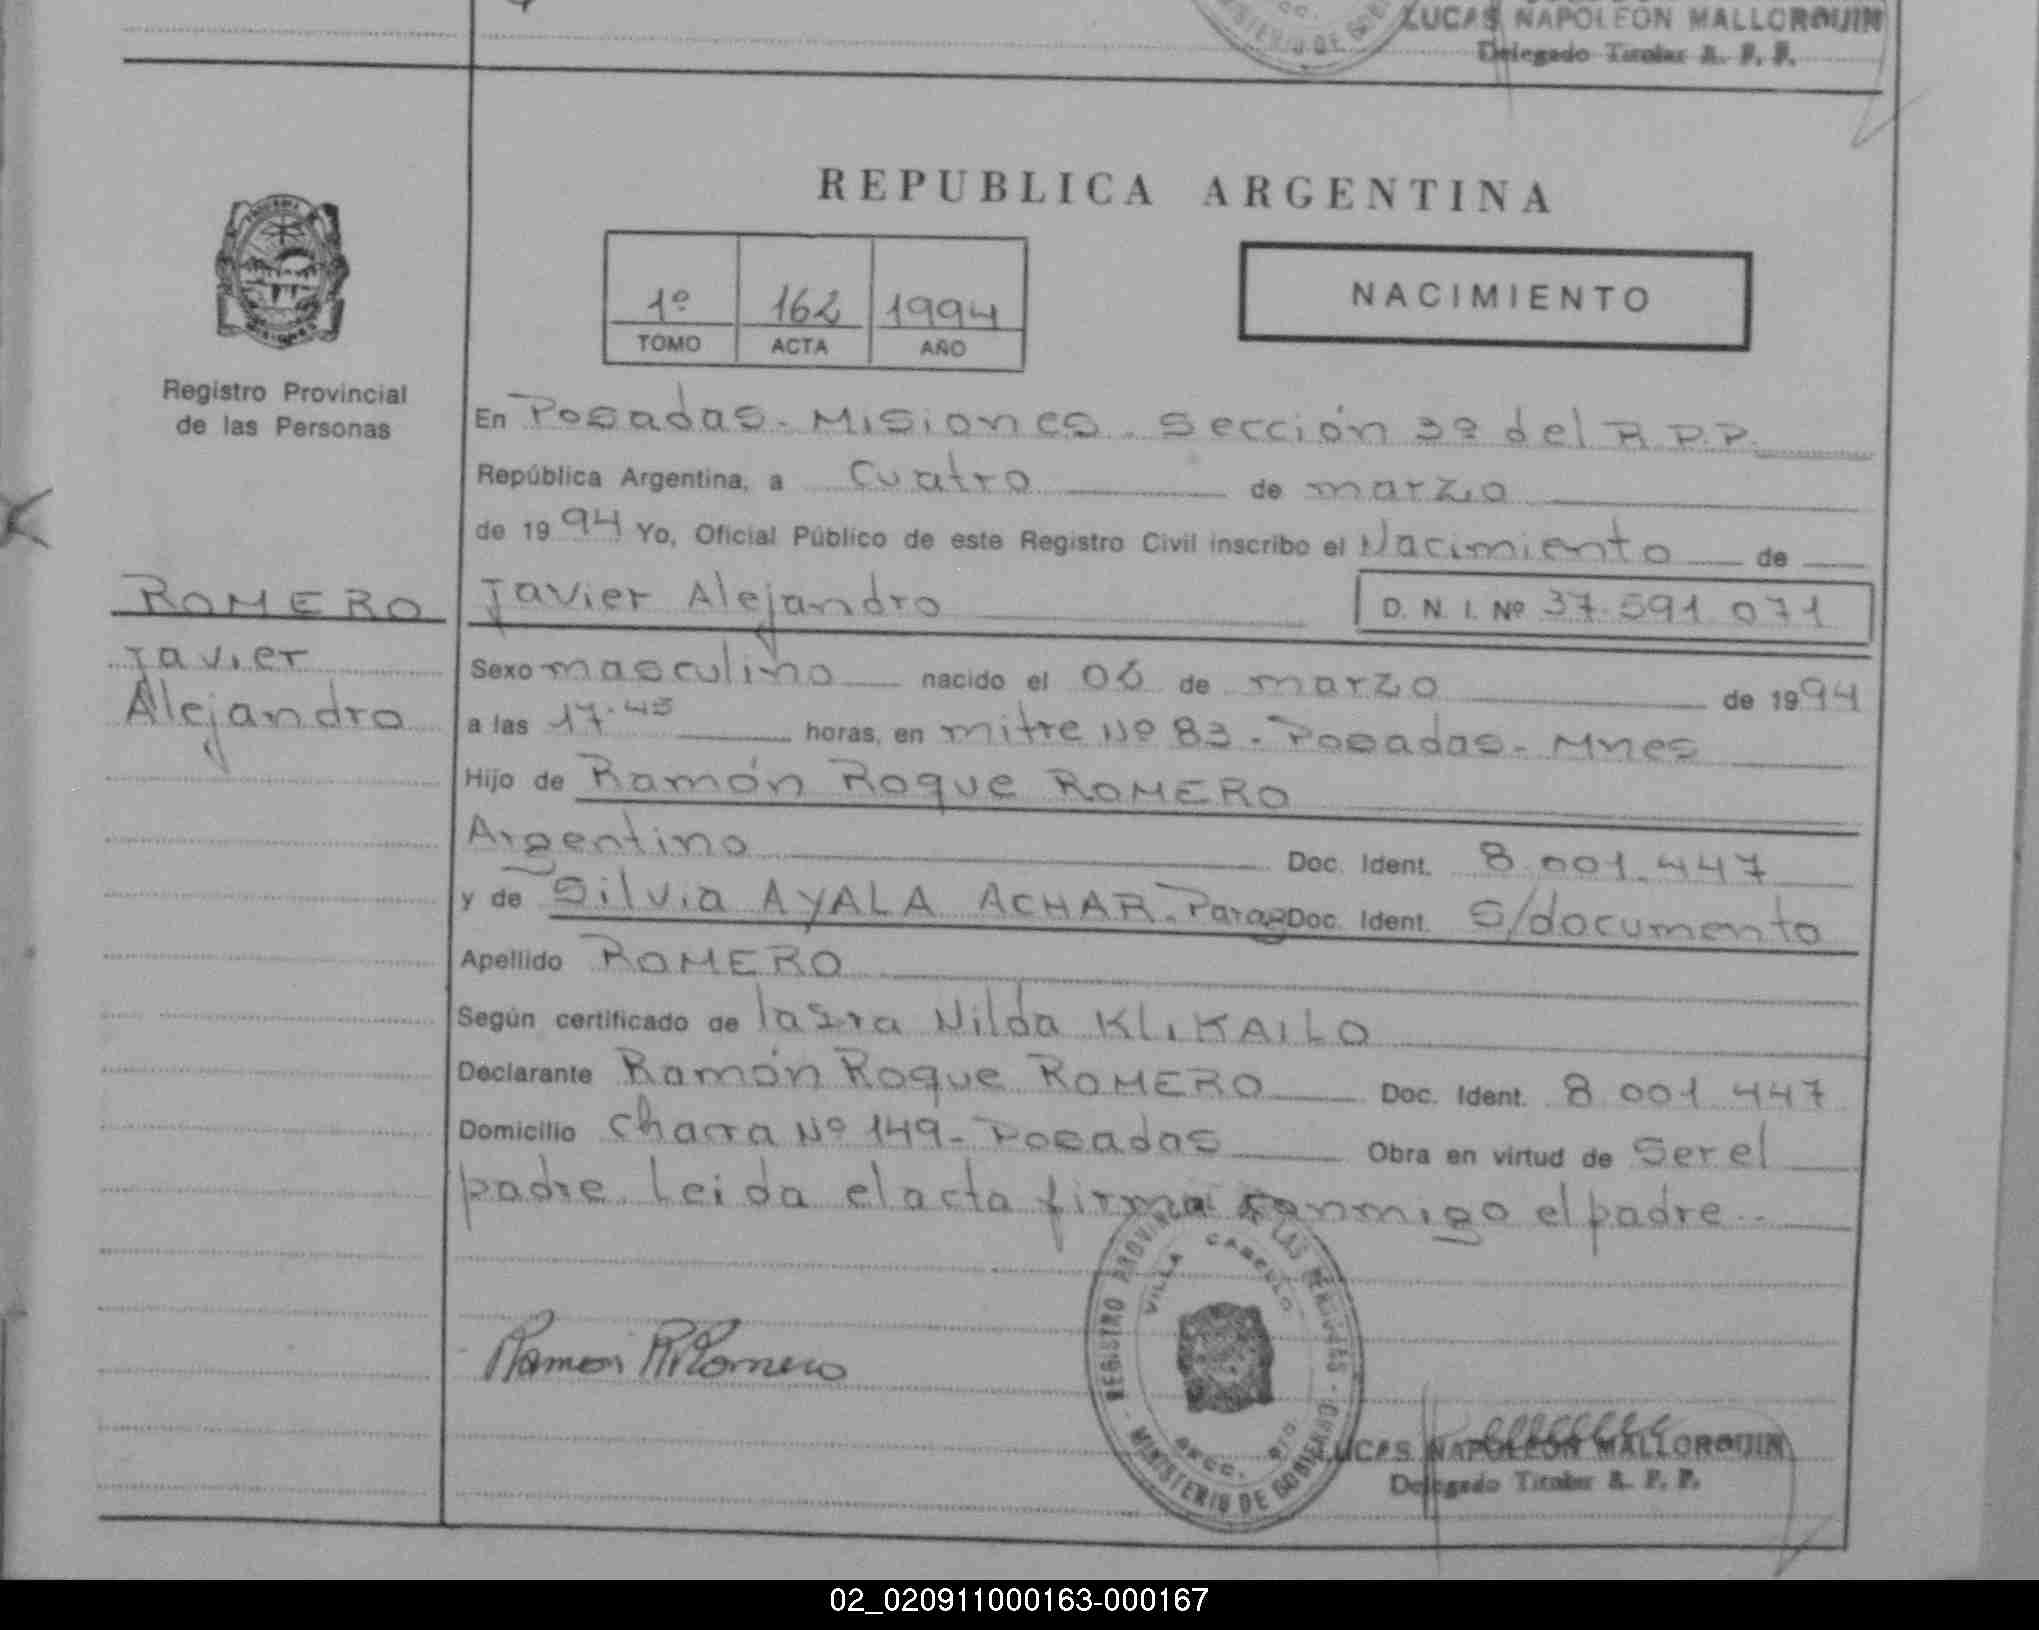 LUCAS NAPOLEON MALLORQUIN
MINISTERIO DE
Delegado Titular R. P. P.
REPUBLICA ARGENTINA
1º 162 1994
TOMO ACTA AÑO
NACIMIENTO
Registro Provincial
de las Personas
En Posadas - Misiones - Sección 3º del R.P.P.
República Argentina, a Cuatro de marzo
de 1994 Yo, Oficial Público de este Registro Civil inscribo el Nacimiento de
ROMERO
Javier
Alejandro
Javier Alejandro D. N. I. Nº 37.591.071
Sexo masculino nacido el 06 de marzo de 1994
a las 17.45 horas, en mitre Nº 83 - Posadas - Mnes
Hijo de Ramón Roque ROMERO
Argentino Doc. Ident. 8.001.447
y de Silvia AYALA ACHAR. Parag Doc. Ident. S/documento
Apellido ROMERO
Según certificado de la Sra Nilda KLIKAILO
Declarante Ramón Roque ROMERO Doc. Ident. 8.001.447
Domicilio Chacra Nº 149 - Posadas Obra en virtud de Ser el
padre. Leida el acta firma conmigo el padre..
REGISTRO PROVINCIAL DE LAS PERSONAS - MINISTERIO DE GOBIERNO -
VILLA CABELLO
SECC.
Ramon R Romero
LUCAS NAPOLEON MALLORQUIN
Delegado Titular R. P. P.
02_020911000163-000167